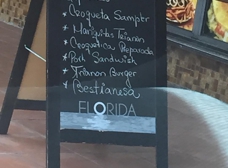 * Croqueta Samper
* Mariquitas Trianon
* Croquetica Preparada
* Pork Sandwich
* Trianon Burger
* Bestianesa
FLORIDA